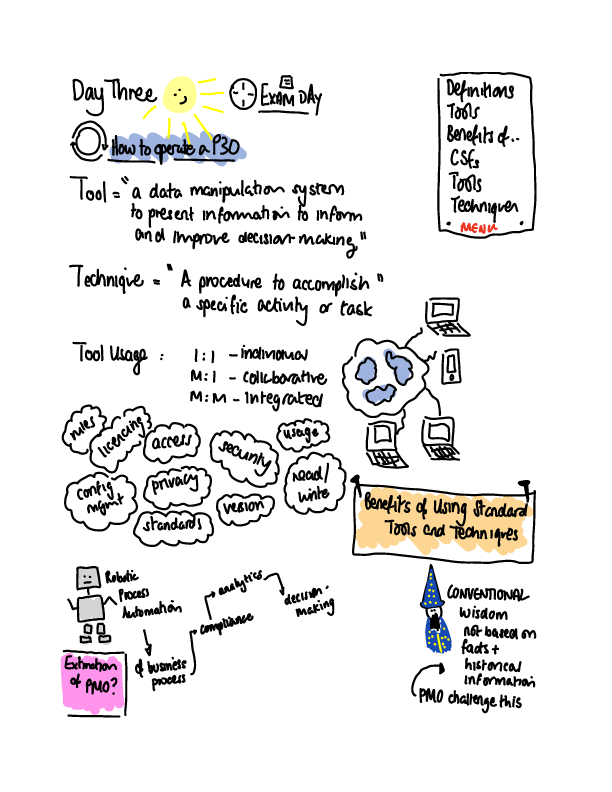 Day Three
EXAM DAY
How to operate a P3O
Definitions
Tools
Benefits of..
CSFs
Tools
Techniques
MENU
Tool = "a data manipulation system
to present information to inform
and improve decision-making"
Technique = "A procedure to accomplish"
a specific activity or task
Tool Usage :
1:1 - individual
M:1 - collaborative
M:M - integrated
rules
licencing
access
security
usage
config
mgmt
privacy
version
read/
write
standards
Benefits of Using Standard
Tools and Techniques
Robotic
Process
Automation
of business
process
compliance
analytics
decision-
making
Extinction
of PMO?
CONVENTIONAL
wisdom
not based on
facts +
historical
information
PMO challenge this